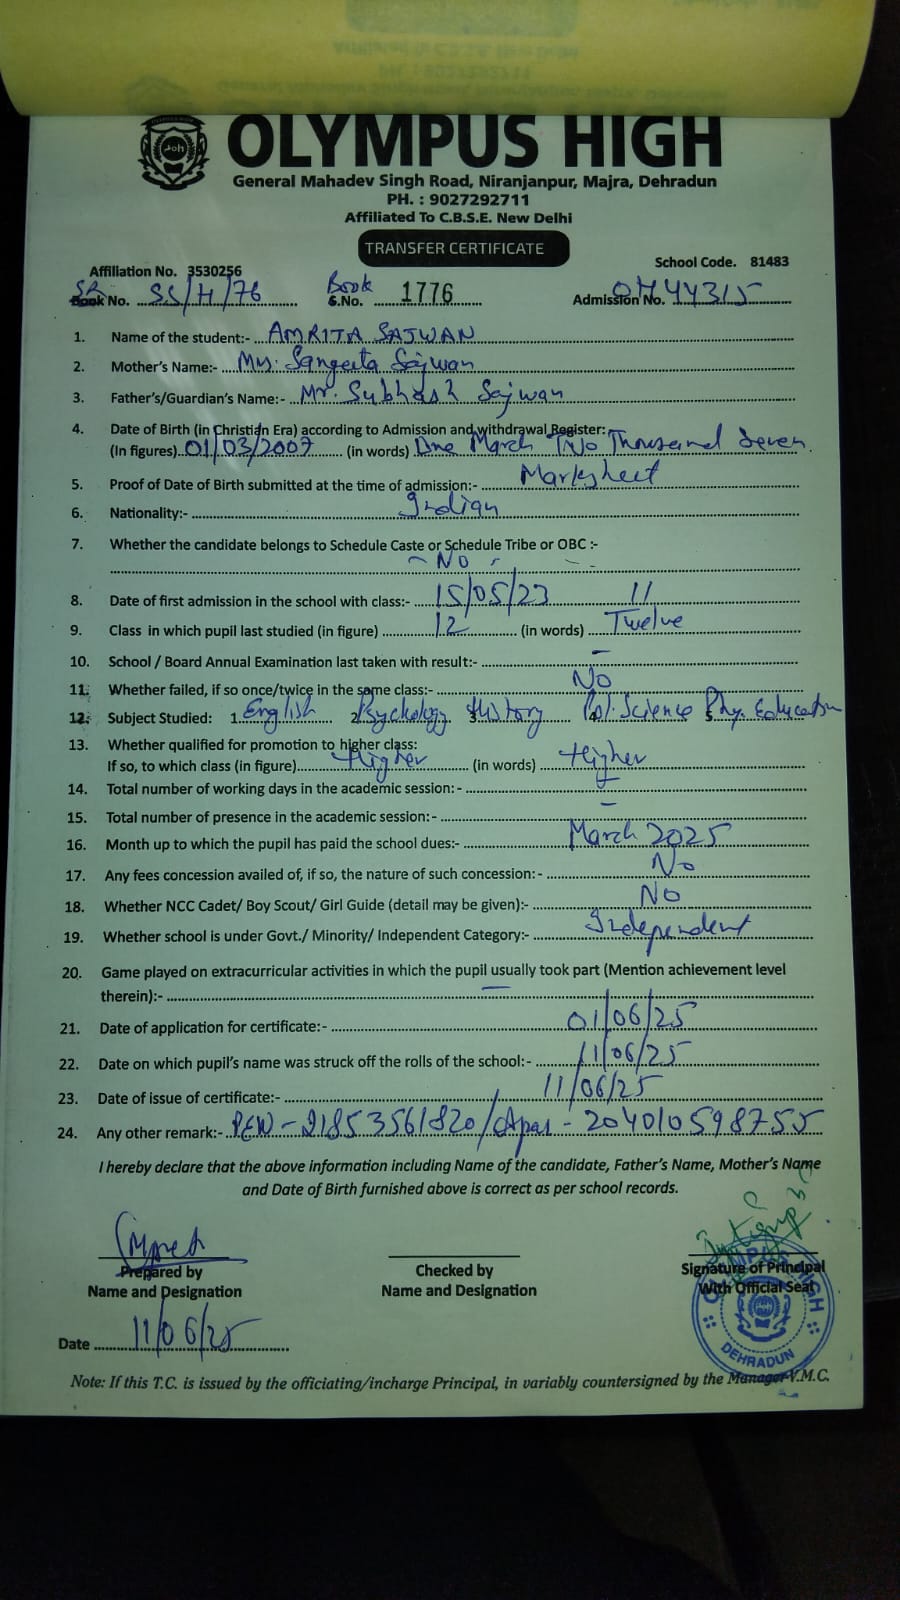 OLYMPUS HIGH
General Mahadev Singh Road, Niranjanpur, Majra, Dehradun
PH. : 9027292711
Affiliated To C.B.S.E. New Delhi
TRANSFER CERTIFICATE
Affiliation No. 3530256 School Code. 81483
SR Book No. SS/H/76 Book S.No. 1776 Admission No. OH44315
1. Name of the student:- AMRITA SAJWAN
2. Mother's Name:- Mrs. Sangeeta Sajwan
3. Father's/Guardian's Name:- Mr. Subhash Sajwan
4. Date of Birth (in Christian Era) according to Admission and withdrawal Register:
(In figures) 01/03/2007 (in words) One March Two Thousand Seven
5. Proof of Date of Birth submitted at the time of admission:- Marksheet
6. Nationality:- Indian
7. Whether the candidate belongs to Schedule Caste or Schedule Tribe or OBC :-
- No -
8. Date of first admission in the school with class:- 15/05/23 11
9. Class in which pupil last studied (in figure) 12 (in words) Twelve
10. School / Board Annual Examination last taken with result:- -
11. Whether failed, if so once/twice in the same class:- No
12. Subject Studied: 1. English 2. Psychology 3. History 4. Pol. Science 5. Phy. Education
13. Whether qualified for promotion to higher class:
If so, to which class (in figure) Higher (in words) Higher
14. Total number of working days in the academic session: - -
15. Total number of presence in the academic session:- -
16. Month up to which the pupil has paid the school dues:- March 2025
17. Any fees concession availed of, if so, the nature of such concession:- No
18. Whether NCC Cadet/ Boy Scout/ Girl Guide (detail may be given):- No
19. Whether school is under Govt./ Minority/ Independent Category:- Independent
20. Game played on extracurricular activities in which the pupil usually took part (Mention achievement level
therein):- -
21. Date of application for certificate:- 01/06/25
22. Date on which pupil's name was struck off the rolls of the school:- 11/06/25
23. Date of issue of certificate:- 11/06/25
24. Any other remark:- PEN-21853561820/Apar - 204010598755
I hereby declare that the above information including Name of the candidate, Father's Name, Mother's Name
and Date of Birth furnished above is correct as per school records.
Prepared by Checked by Signature of Principal
Name and Designation Name and Designation With Official Seal
OLYMPUS HIGH
DEHRADUN
Date 11/06/25
Note: If this T.C. is issued by the officiating/incharge Principal, in variably countersigned by the Manager V.M.C.